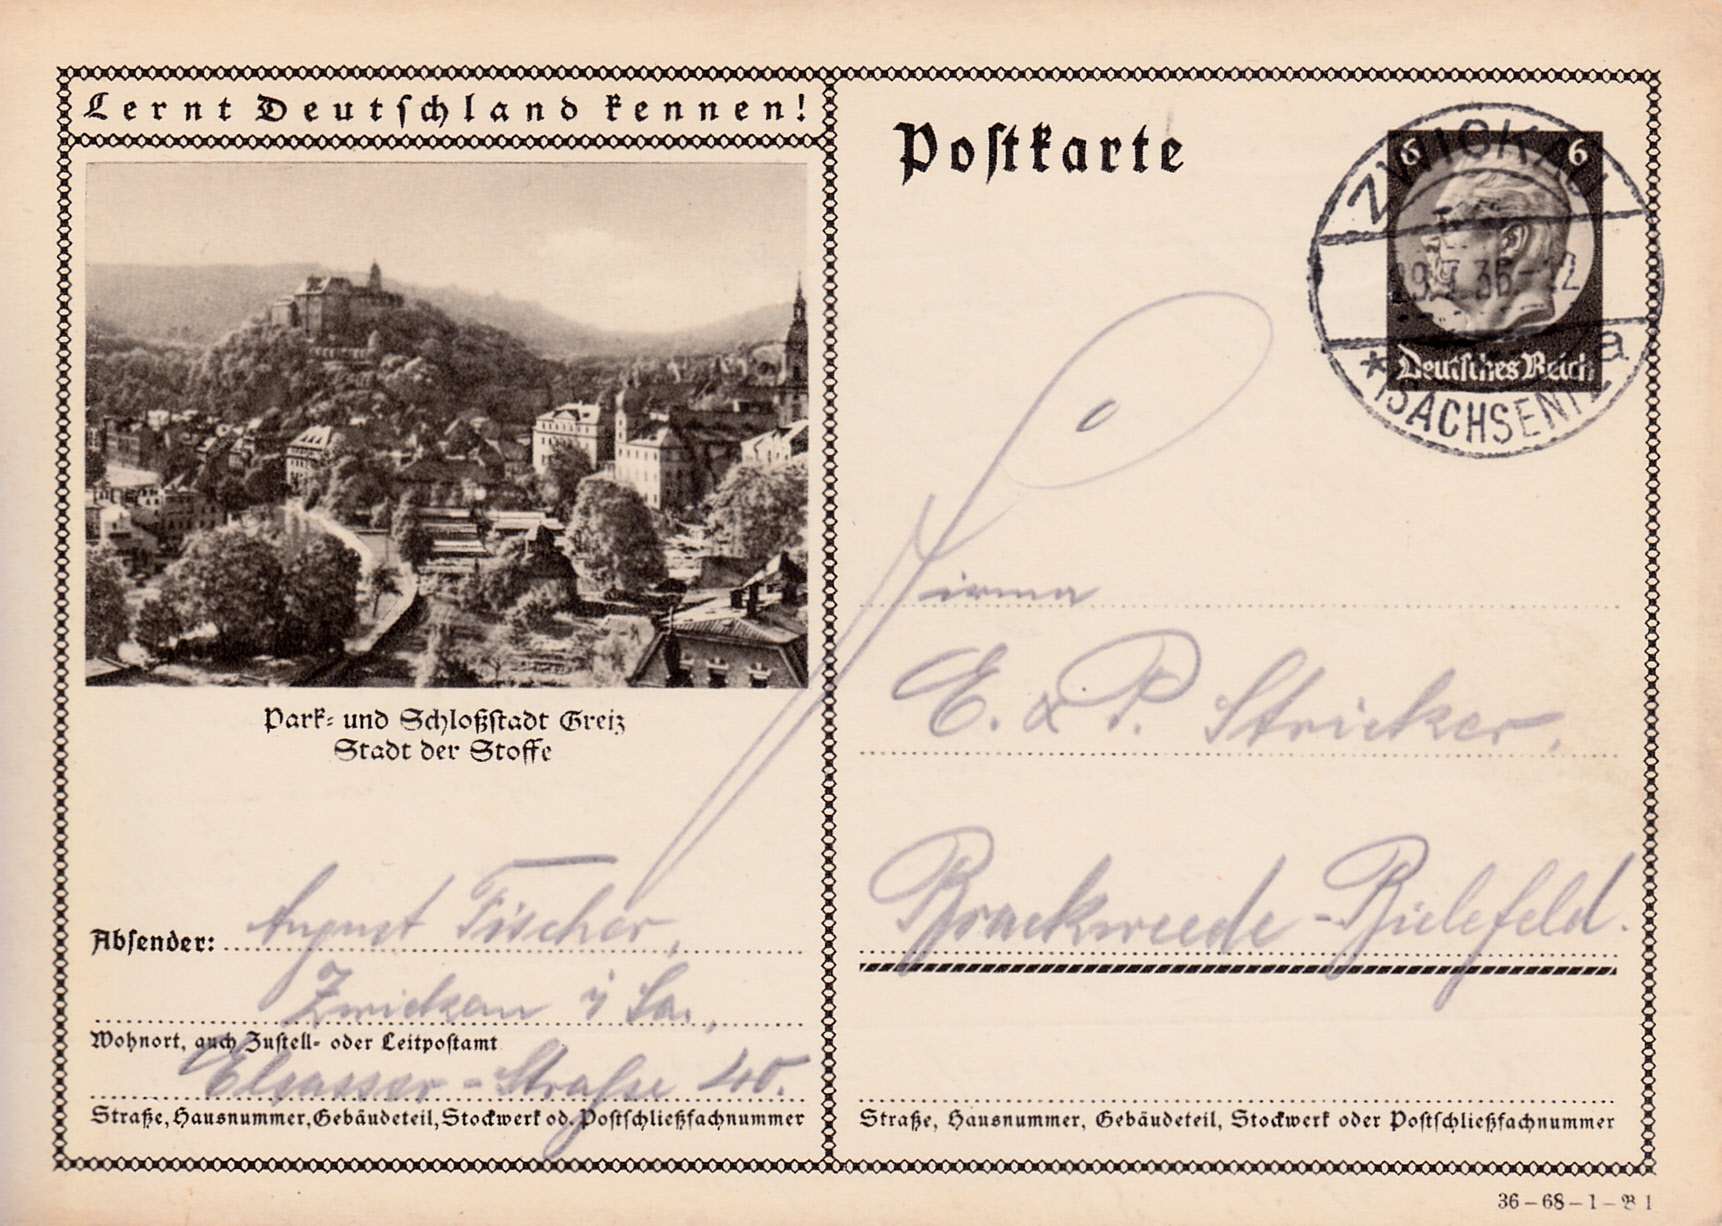 Lernt Deutschland kennen!
Postkarte
6 6
Deutsches Reich
ZWICKAU
36-12
* (SACHSEN) a
Park- und Schloßstadt Greiz
Stadt der Stoffe
Firma
E. & P. Stricker,
Brackweede-Bielefeld.
Absender: August Fischer,
Zwickau i Sa.,
Wohnort, auch Zustell- oder Leitpostamt
Elsasser-Straße 40.
Straße, Hausnummer, Gebäudeteil, Stockwerk od. Postschließfachnummer
Straße, Hausnummer, Gebäudeteil, Stockwerk oder Postschließfachnummer
36-68-1-B 1